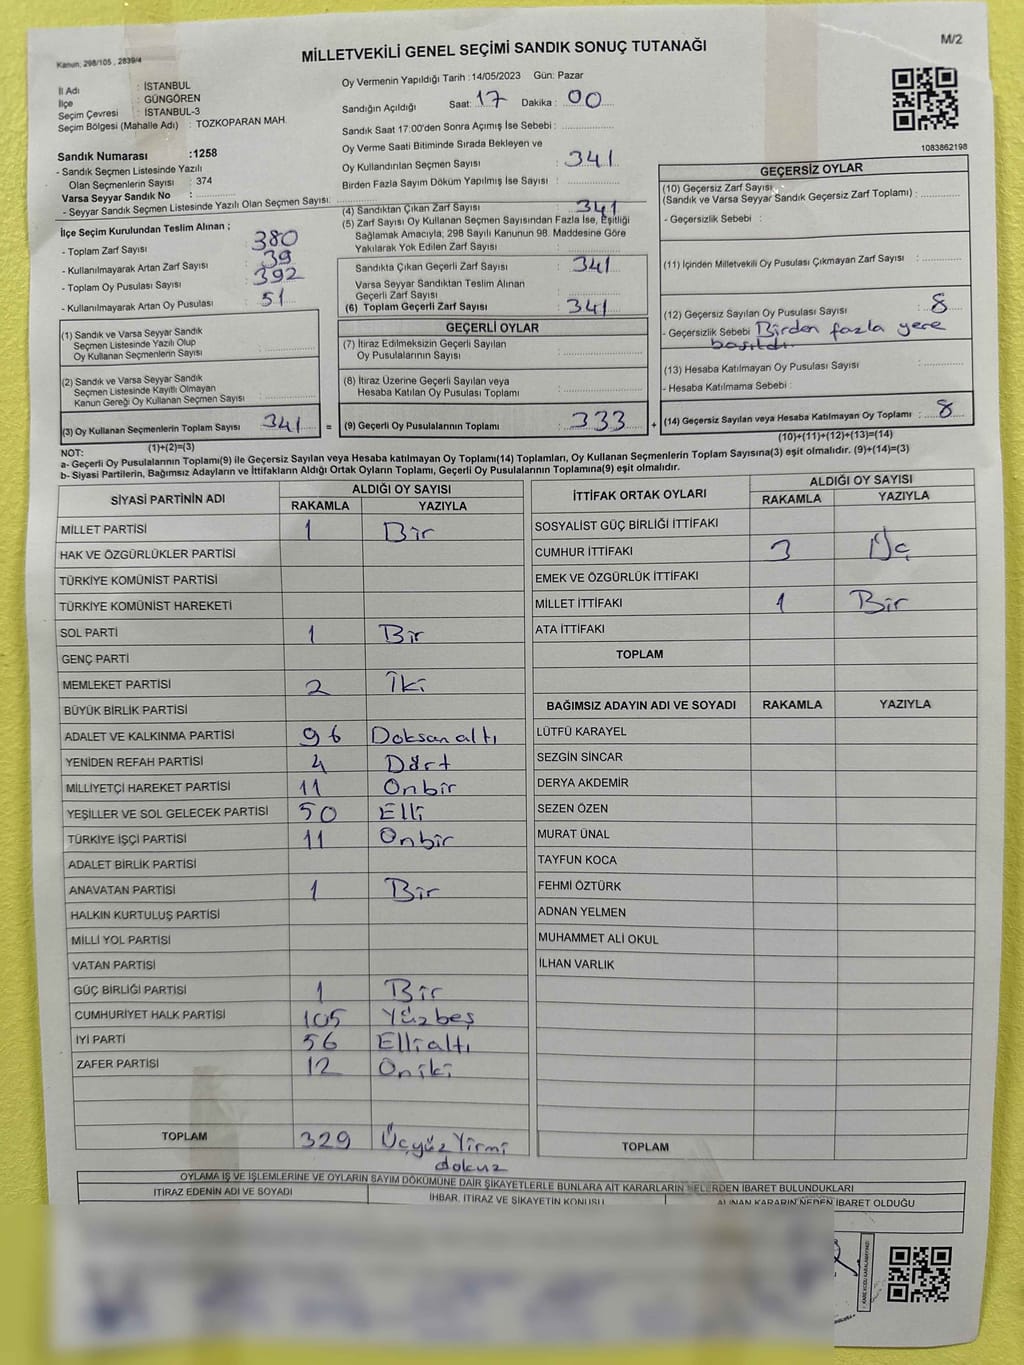 Kanun: 298/105 , 2839/4
MİLLETVEKİLİ GENEL SEÇİMİ SANDIK SONUÇ TUTANAĞI
M/2
İl Adı : İSTANBUL
İlçe : GÜNGÖREN
Seçim Çevresi : İSTANBUL-3
Seçim Bölgesi (Mahalle Adı) : TOZKOPARAN MAH.
Sandık Numarası :1258
- Sandık Seçmen Listesinde Yazılı
Olan Seçmenlerin Sayısı : 374
Varsa Seyyar Sandık No :
- Seyyar Sandık Seçmen Listesinde Yazılı Olan Seçmen Sayısı:
Oy Vermenin Yapıldığı Tarih :14/05/2023 Gün: Pazar
Sandığın Açıldığı Saat: 17 Dakika : 00
Sandık Saat 17:00'den Sonra Açımış İse Sebebi :
Oy Verme Saati Bitiminde Sırada Bekleyen ve
Oy Kullandırılan Seçmen Sayısı : 341
Birden Fazla Sayım Döküm Yapılmış İse Sayısı :
1083862198
İlçe Seçim Kurulundan Teslim Alınan ;
- Toplam Zarf Sayısı : 380
- Kullanılmayarak Artan Zarf Sayısı : 39
- Toplam Oy Pusulası Sayısı : 392
- Kullanılmayarak Artan Oy Pusulası : 51
(1) Sandık ve Varsa Seyyar Sandık
Seçmen Listesinde Yazılı Olup
Oy Kullanan Seçmenlerin Sayısı :
(2) Sandık ve Varsa Seyyar Sandık
Seçmen Listesinde Kayıtlı Olmayan
Kanun Gereği Oy Kullanan Seçmen Sayısı :
(3) Oy Kullanan Seçmenlerin Toplam Sayısı : 341 =
(1)+(2)=(3)
(4) Sandıktan Çıkan Zarf Sayısı : 341
(5) Zarf Sayısı Oy Kullanan Seçmen Sayısından Fazla İse, Eşitliği
Sağlamak Amacıyla; 298 Sayılı Kanunun 98. Maddesine Göre
Yakılarak Yok Edilen Zarf Sayısı :
Sandıkta Çıkan Geçerli Zarf Sayısı : 341
Varsa Seyyar Sandıktan Teslim Alınan
Geçerli Zarf Sayısı :
(6) Toplam Geçerli Zarf Sayısı : 341
GEÇERLİ OYLAR
(7) İtiraz Edilmeksizin Geçerli Sayılan
Oy Pusulalarının Sayısı :
(8) İtiraz Üzerine Geçerli Sayılan veya
Hesaba Katılan Oy Pusulası Toplamı :
(9) Geçerli Oy Pusulalarının Toplamı : 333 +
GEÇERSİZ OYLAR
(10) Geçersiz Zarf Sayısı
(Sandık ve Varsa Seyyar Sandık Geçersiz Zarf Toplamı) :
- Geçersizlik Sebebi :
(11) İçinden Milletvekili Oy Pusulası Çıkmayan Zarf Sayısı :
(12) Geçersiz Sayılan Oy Pusulası Sayısı : 8
- Geçersizlik Sebebi Birden fazla yere
basıldı.
(13) Hesaba Katılmayan Oy Pusulası Sayısı :
- Hesaba Katılmama Sebebi :
(14) Geçersiz Sayılan veya Hesaba Katılmayan Oy Toplamı : 8
(10)+(11)+(12)+(13)=(14)
NOT:
a- Geçerli Oy Pusulalarının Toplamı(9) ile Geçersiz Sayılan veya Hesaba katılmayan Oy Toplamı(14) Toplamları, Oy Kullanan Seçmenlerin Toplam Sayısına(3) eşit olmalıdır. (9)+(14)=(3)
b- Siyasi Partilerin, Bağımsız Adayların ve İttifakların Aldığı Ortak Oyların Toplamı, Geçerli Oy Pusulalarının Toplamına(9) eşit olmalıdır.
SİYASİ PARTİNİN ADI ALDIĞI OY SAYISI
RAKAMLA YAZIYLA
MİLLET PARTİSİ 1 Bir
HAK VE ÖZGÜRLÜKLER PARTİSİ
TÜRKİYE KOMÜNİST PARTİSİ
TÜRKİYE KOMÜNİST HAREKETİ
SOL PARTİ 1 Bir
GENÇ PARTİ
MEMLEKET PARTİSİ 2 İki
BÜYÜK BİRLİK PARTİSİ
ADALET VE KALKINMA PARTİSİ 96 Doksan altı
YENİDEN REFAH PARTİSİ 4 Dört
MİLLİYETÇİ HAREKET PARTİSİ 11 Onbir
YEŞİLLER VE SOL GELECEK PARTİSİ 50 Elli
TÜRKİYE İŞÇİ PARTİSİ 11 Onbir
ADALET BİRLİK PARTİSİ
ANAVATAN PARTİSİ 1 Bir
HALKIN KURTULUŞ PARTİSİ
MİLLİ YOL PARTİSİ
VATAN PARTİSİ
GÜÇ BİRLİĞİ PARTİSİ 1 Bir
CUMHURİYET HALK PARTİSİ 105 Yüzbeş
İYİ PARTİ 56 Elli altı
ZAFER PARTİSİ 12 Oniki
TOPLAM 329 Üçyüz Yirmi
dokuz
İTTİFAK ORTAK OYLARI ALDIĞI OY SAYISI
RAKAMLA YAZIYLA
SOSYALİST GÜÇ BİRLİĞİ İTTİFAKI
CUMHUR İTTİFAKI 3 Üç
EMEK VE ÖZGÜRLÜK İTTİFAKI
MİLLET İTTİFAKI 1 Bir
ATA İTTİFAKI
TOPLAM
BAĞIMSIZ ADAYIN ADI VE SOYADI RAKAMLA YAZIYLA
LÜTFÜ KARAYEL
SEZGİN SİNCAR
DERYA AKDEMİR
SEZEN ÖZEN
MURAT ÜNAL
TAYFUN KOCA
FEHMİ ÖZTÜRK
ADNAN YELMEN
MUHAMMET ALİ OKUL
İLHAN VARLIK
TOPLAM
OYLAMA İŞ VE İŞLEMLERİNE VE OYLARIN SAYIM DÖKÜMÜNE DAİR ŞİKAYETLERLE BUNLARA AİT KARARLARIN NELERDEN İBARET BULUNDUKLARI
İTİRAZ EDENİN ADI VE SOYADI İHBAR, İTİRAZ VE ŞİKAYETİN KONUSU ALINAN KARARIN NEDEN İBARET OLDUĞU